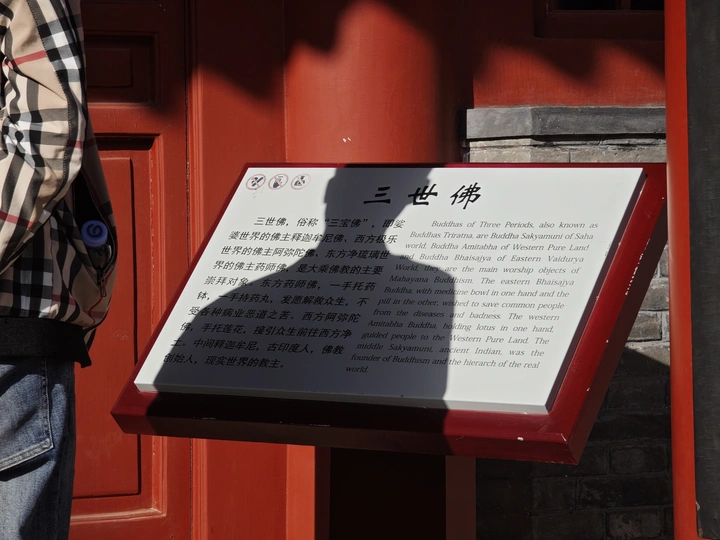 三世佛
三世佛，俗称“三宝佛”，即娑
婆世界的佛主释迦牟尼佛，西方极乐
世界的佛主阿弥陀佛，东方净琉璃世
界的佛主药师佛，是大乘佛教的主要
崇拜对象。东方药师佛，一手托药
钵，一手持药丸，发愿解救众生，不
受各种病业恶道之苦。西方阿弥陀
佛，手托莲花，接引众生前往西方净
土。中间释迦牟尼，古印度人，佛教
创始人，现实世界的教主。
Buddhas of Three Periods, also known as
Buddhas Triratna, are Buddha Sakyamuni of Saha
world, Buddha Amitabha of Western Pure Land
and Buddha Bhaisajya of Eastern Vaidurya
World, they are the main worship objects of
Mahayana Buddhism. The eastern Bhaisajya
Buddha, with medicine bowl in one hand and the
pill in the other, wished to save common people
from the diseases and badness. The western
Amitabha Buddha, holding lotus in one hand,
guided people to the Western Pure Land. The
middle Sakyamuni, ancient Indian, was the
founder of Buddhism and the hierarch of the real
world.